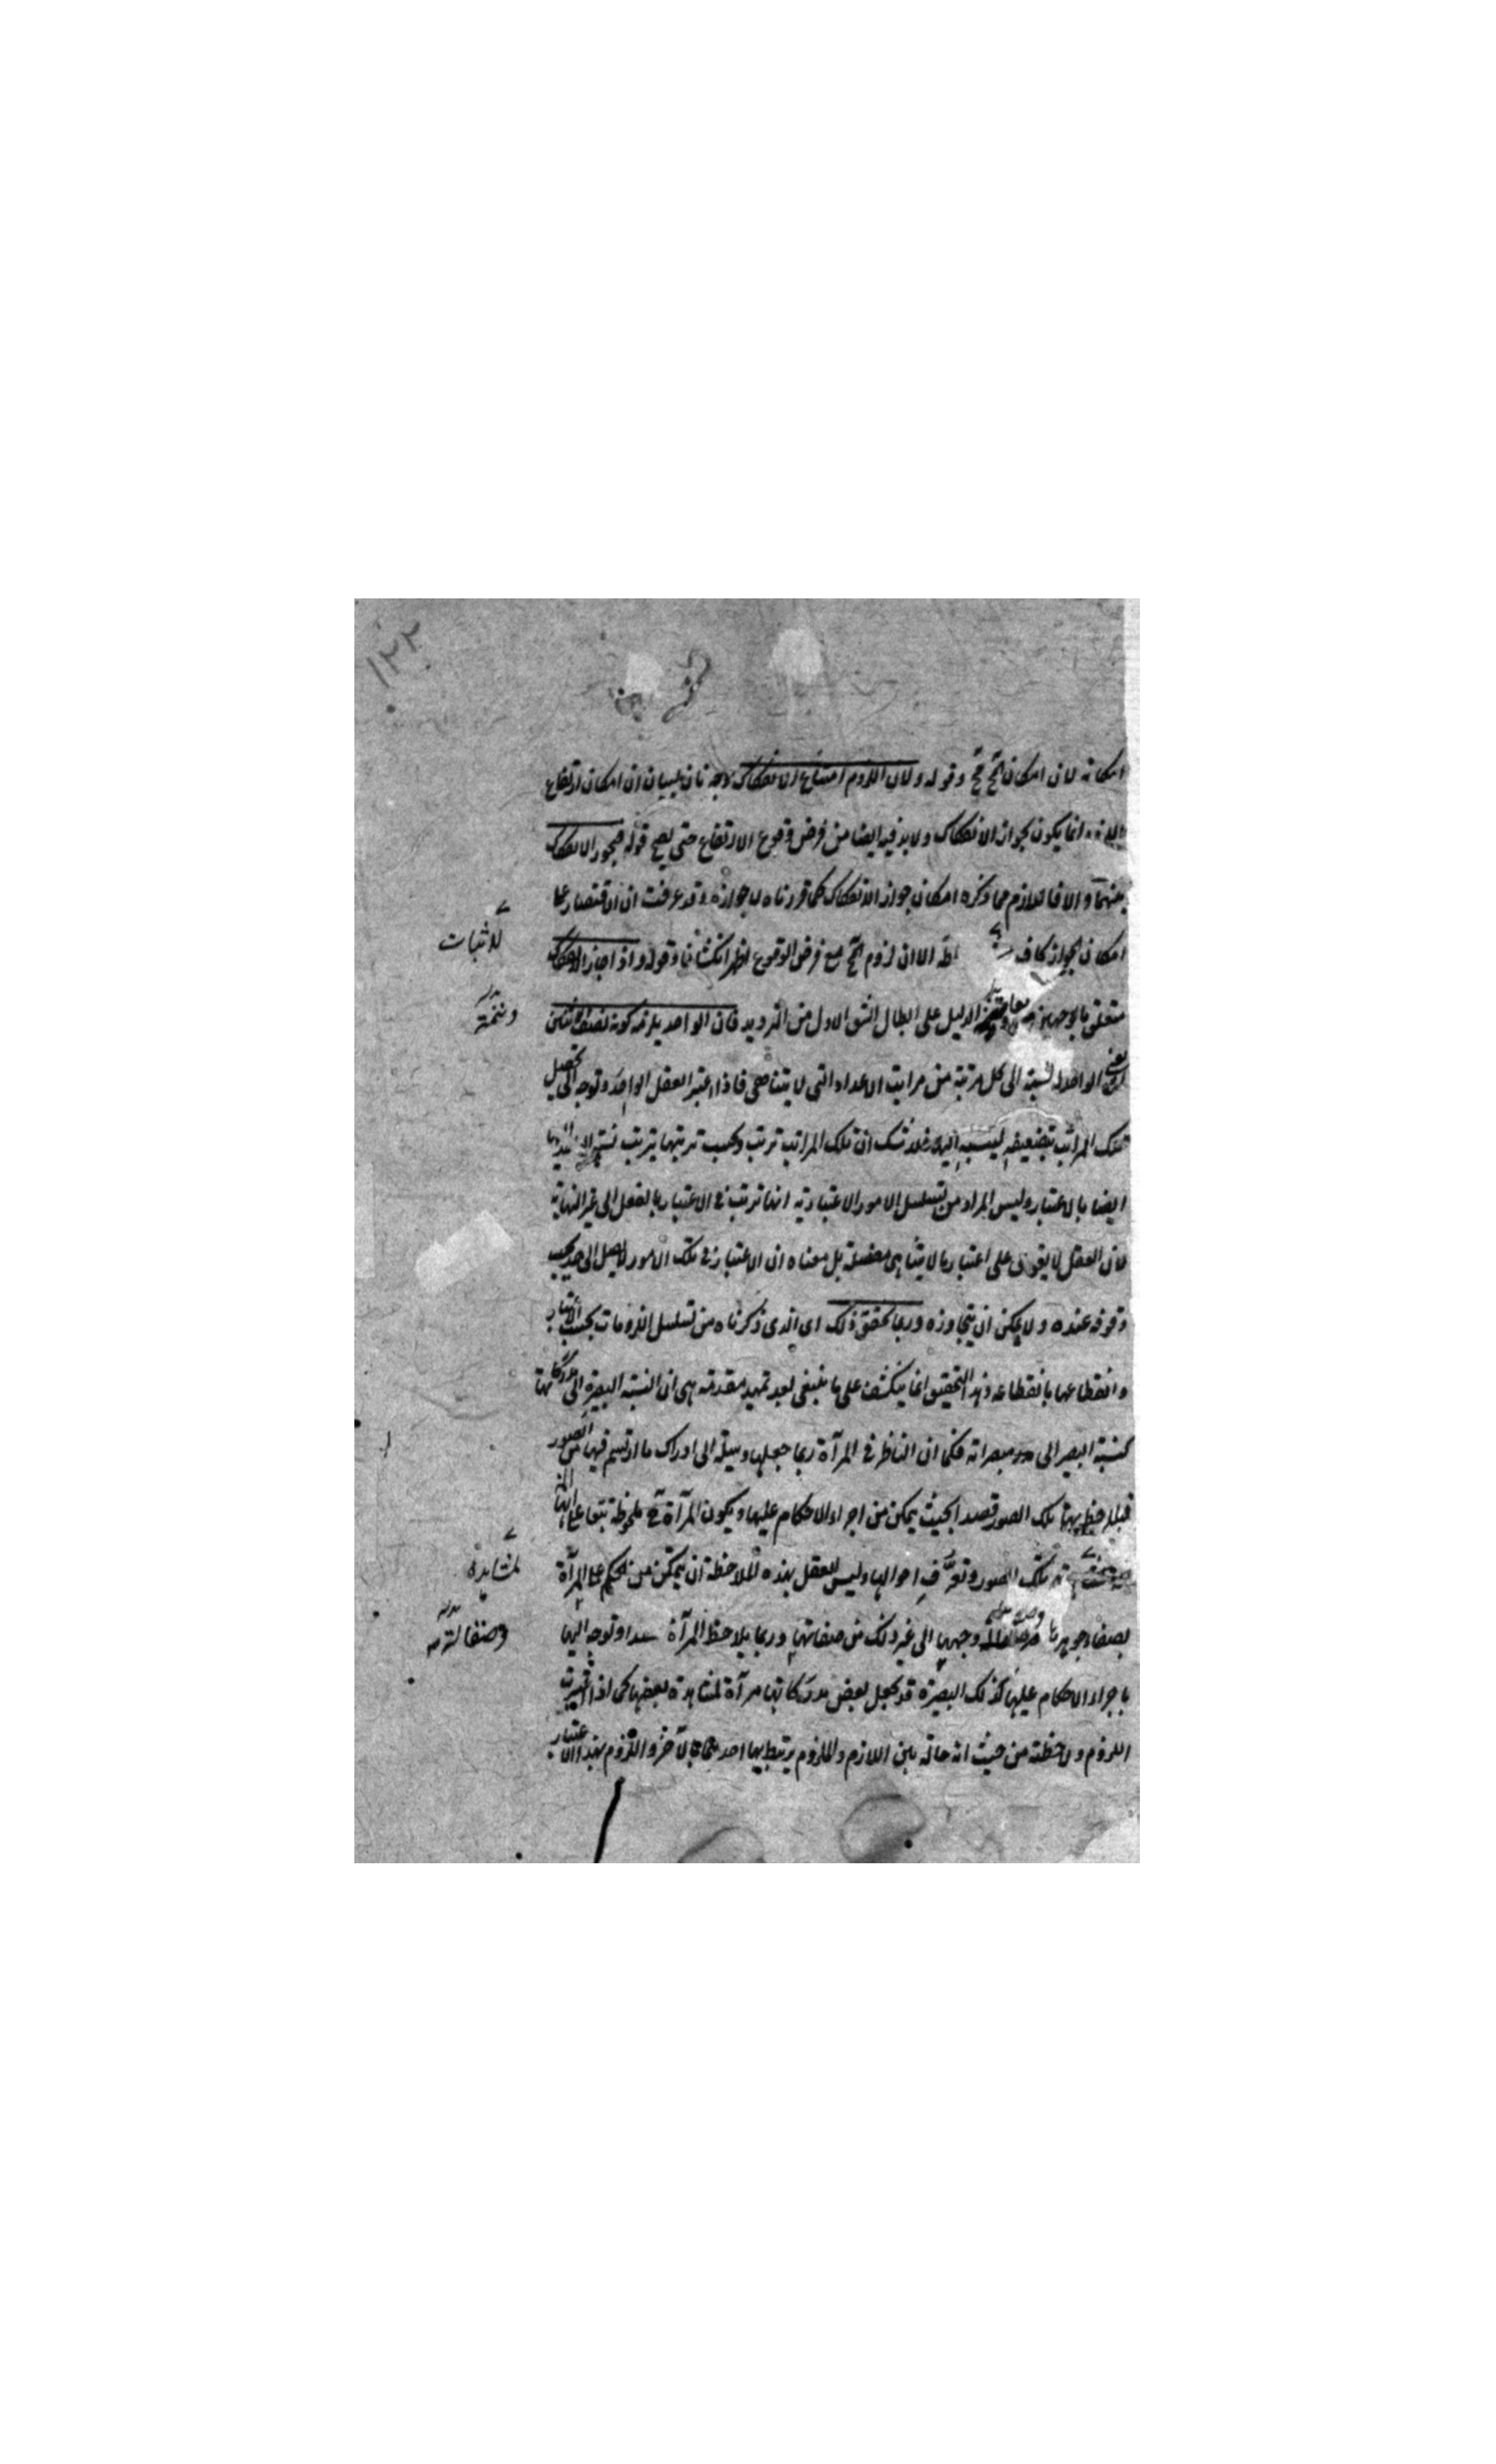 ١٢٢
امكانه لان امكان المح مح وقوله ولان اللزوم امتناع الانفكاك وجه ثان لبيان ان امكان ارتفاع
انما يكون بجواز الانفكاك ولا بد فيه ايضا من فرض وقوع الارتفاع حتى يصح قوله فيجوز الانفكاك
بينهما والا فاللازم مما ذكره امكان جواز الانفكاك كما قررناه لا جوازه وقد عرفت ان الاقتصار على
امكان الجواز كاف الا ان لزوم المح مع فرض الوقوع اظهر انكشافا وقوله واذا جاز الانفكاك
للاثبات
متعلق بالوجهين الدليل على ابطال الشق الاول من الترديد فان الواحد يلزمه كونه نصف الاثنين
وتتمة
يعنى ان الواحد له نسبة الى كل مرتبة من مراتب الاعداد التى لا يتناهى فاذا اعتبر العقل الواحد وتوجه الى تحصيل
تلك المراتب بتضعيفه لينسبه اليها فلا شك ان تلك المراتب ترتب وبحسب ترتبها يترتب نسبه
ايضا بالاعتبار وليس المراد من تسلسل الامور الاعتبارية انها ترتب فى الاعتبار بالفعل الى غير النهاية
لان العقل لا يقوى على اعتبار ما لا يتناهى مفصلة بل معناه ان الاعتبار فى تلك الامور لا يصل الى حد يجب
وقوفه عنده ولا يمكن ان يتجاوزه وربما تحقق ذلك اى الذى ذكرناه من تسلسل اللزومات بحسب الاعتبار
وانقطاعها بانقطاعه وهذا التحقيق انما ينكشف على ما ينبغى بعد تمهيد مقدمة هى ان النسبة البصيرة الى مدركاتها
كنسبة البصر الى مبصراته فكما ان الناظر فى المرآة ربما جعلها وسيلة الى ادراك ما ارتسم فيها من الصور
فيلاحظ بها تلك الصور قصدا بحيث يمكن من اجراء الاحكام عليها ويكون المرآة ح ملحوظة تبعا على انها
تلك الصور وتعرف احوالها وليس للعقل بهذه الملاحظة ان يتمكن من الحكم على المرآة
لمشاهدة
بصفاء جوهرها وجهها الى غير ذلك من صفاتها وربما يلاحظ المرآة وتوجه اليها
باجراء الاحكام عليها كذلك البصيرة قد تجعل بعض مدركاتها مرآة لمشاهدة بعضها كما اذا
اللزوم ولاحظته من حيث انه حالة بين اللازم والملزوم يرتبط بها احدهما بالآخر واللزوم بهذا الاعتبار